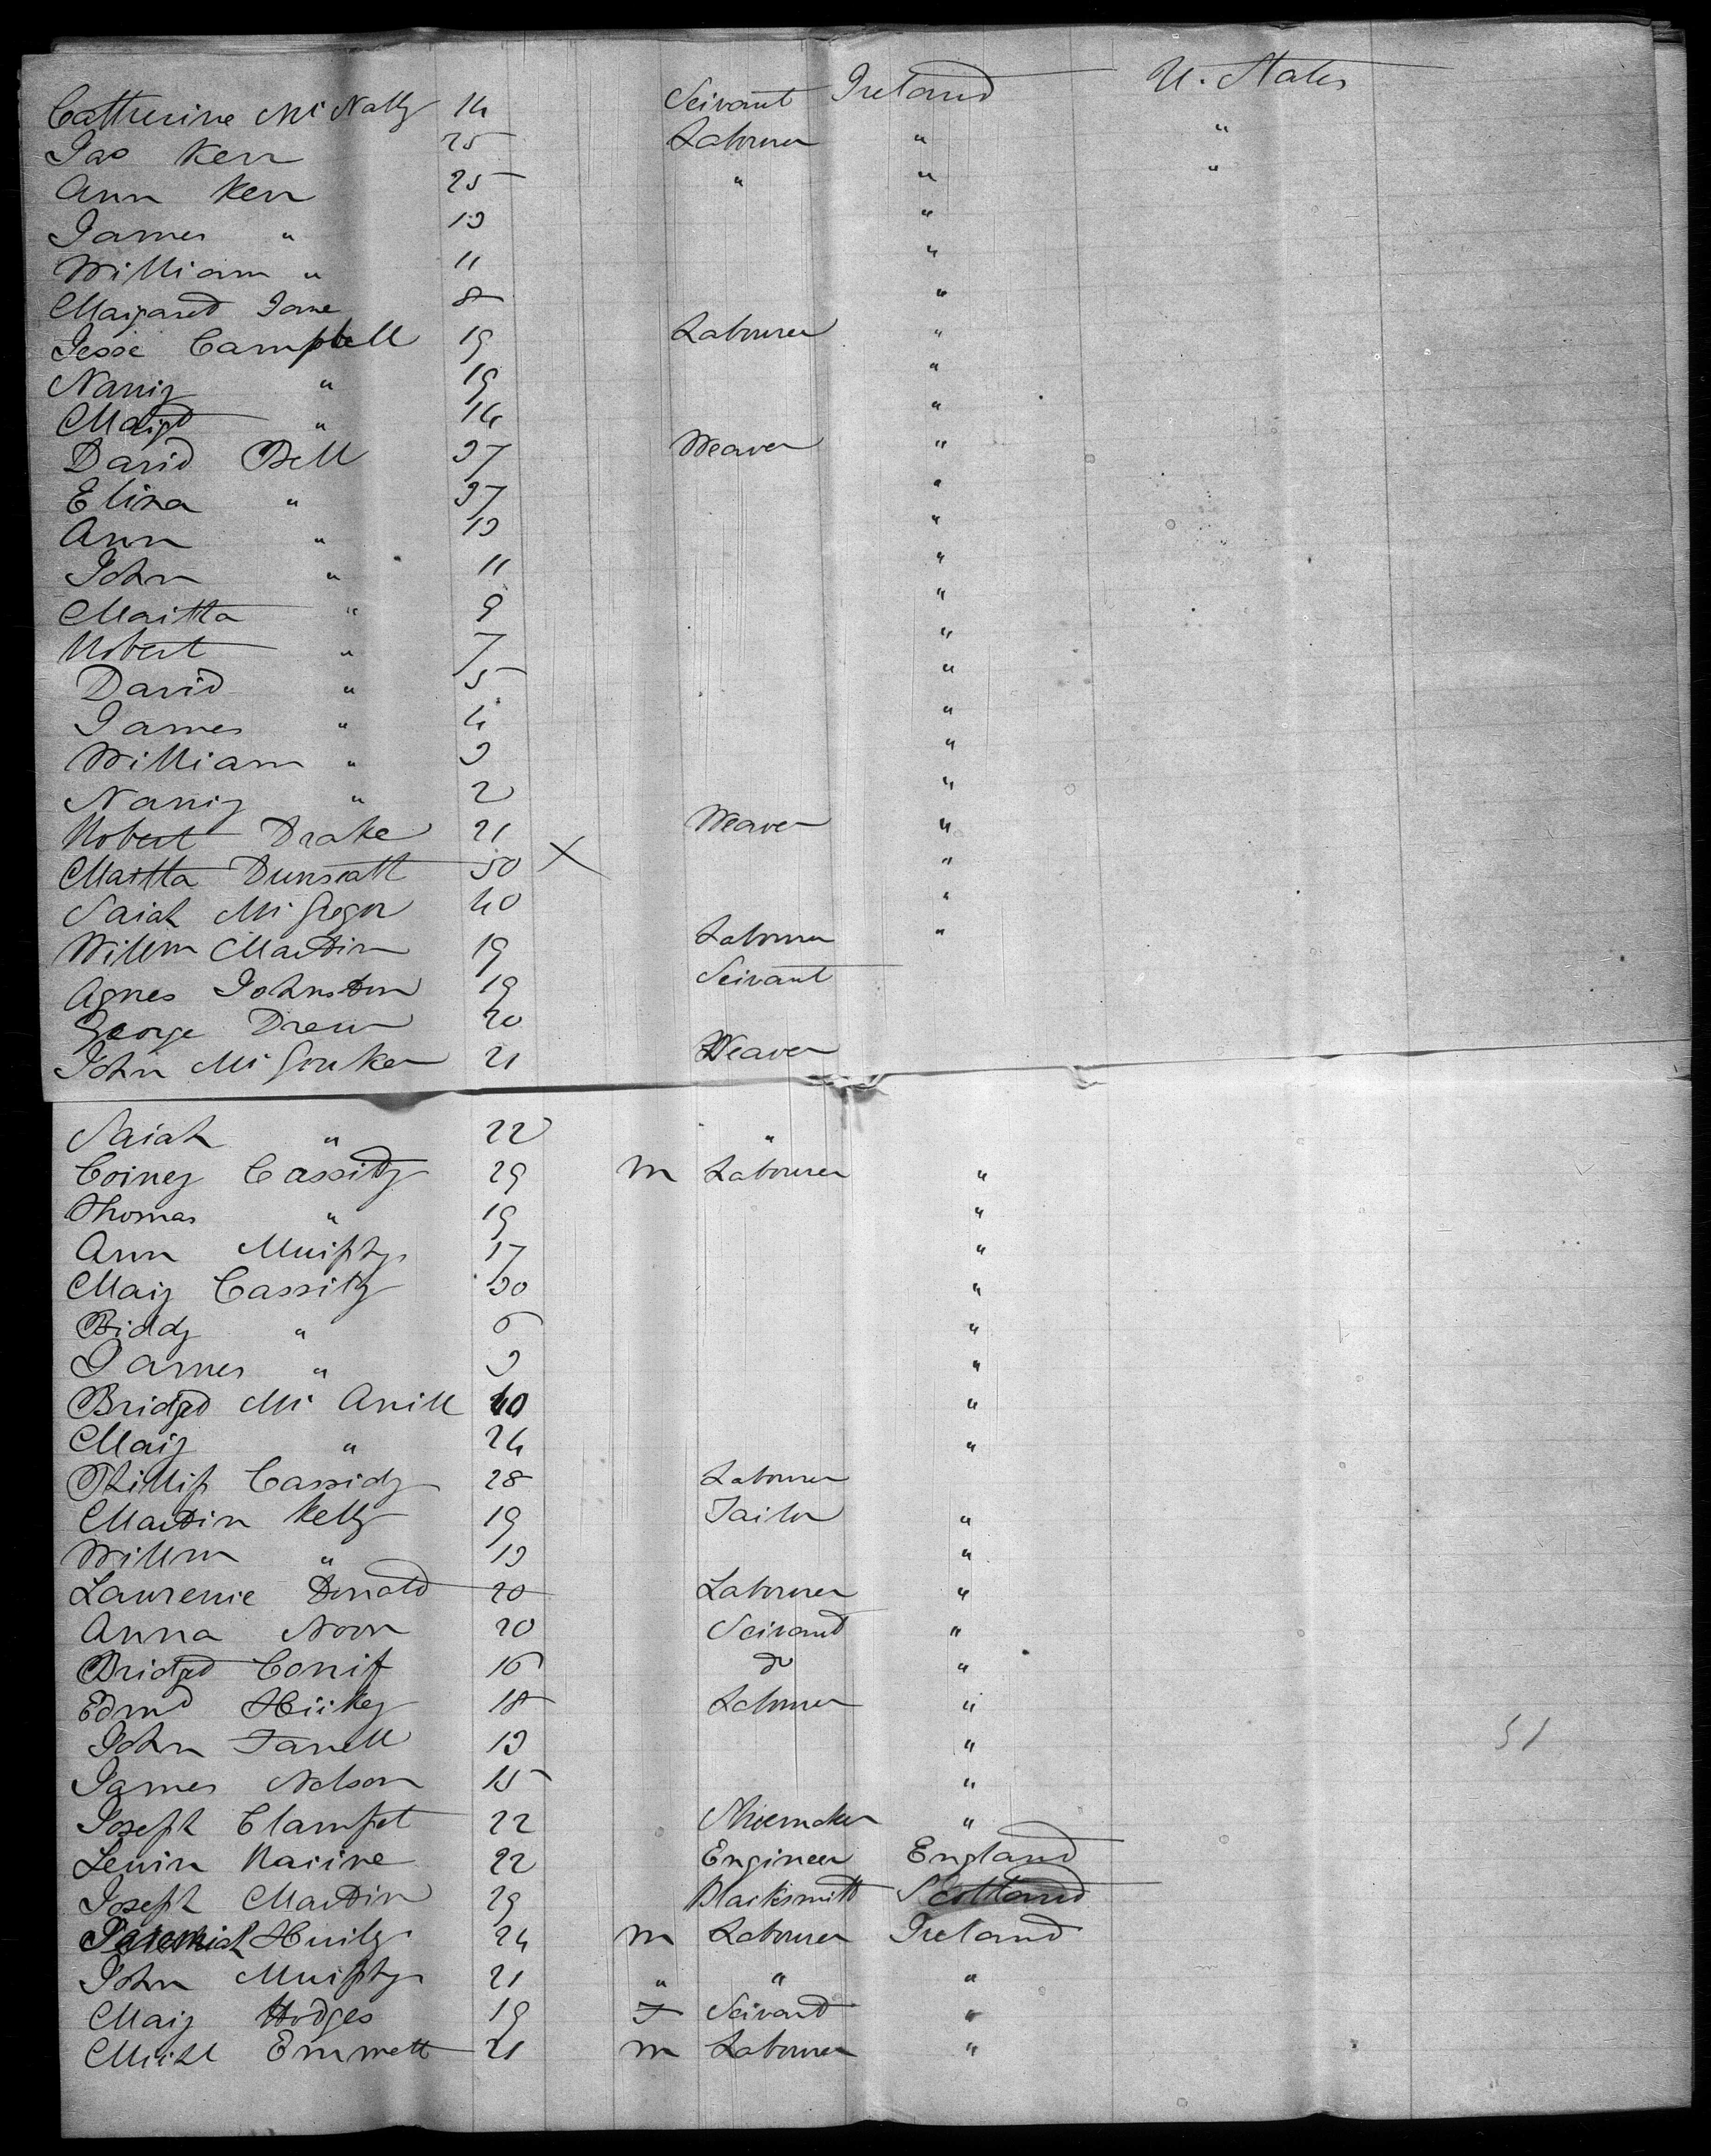 Catherine McNally 14 Servant Ireland U. States
Jas Kerr 25 Labourer " "
Ann Kerr 25 " " "
James " 13 "
William " 11 "
Margaret Jane 8 "
Jesse Campbell 19 Labourer "
Nancy " 19 "
Margt " 14 "
David Bell 37 Weaver "
Eliza " 37 "
Ann " 13 "
John " 11 "
Martha " 9 "
Robert " 7 "
David " 5 "
James " 4 "
William " 3 "
Nancy " 2 "
Robert Drake 21 Weaver "
Martha Dunseath 50 X "
Sarah McGregor 40 "
Willm Martin 19 Labourer "
Agnes Johnston 19 Servant
George Drew 20
John McGouker 21 Weaver
Sarah " 22 "
Corney Cassidy 29 m Labourer "
Thomas " 19 "
Ann Murphy 17 "
Mary Cassidy 30 "
Biddy " 6 "
James " 3 "
Bridget Mc Arill 40 "
Mary " 24 "
Phillip Cassidy 28 Labourer
Martin Kelly 19 Tailor "
Willm " 13 "
Lawrence Donald 20 Labourer "
Anna Noon 20 Servant "
Bridget Conif 16 do "
Edmd Hickey 18 Labourer "
John Farrell 13 "
51
James Nelson 15 "
Joseph Clampet 22 Shoemaker "
Lewin Racine 22 Engineer England
Joseph Martin 29 Blacksmith Scotland
Jeremiah Hurly 24 m Labourer Ireland
John Murphy 21 " " "
Mary Hodges 19 F Servant "
Michl Emmett 21 m Labourer "